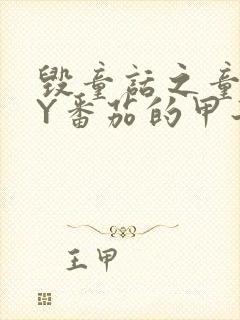 毁童话之童
Y番茄的甲
王甲